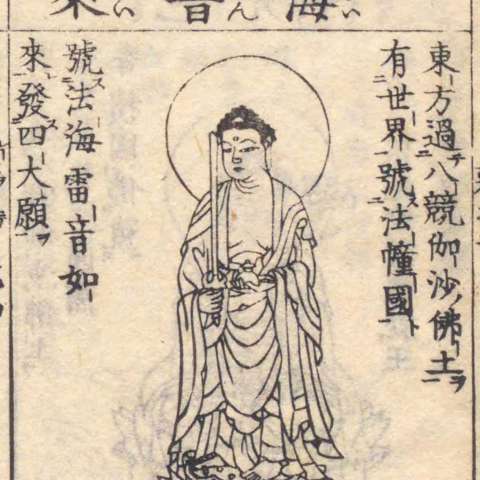 海音來
東方過八競伽沙佛土
有世界號法幢國
號法海雷音如
來發四大願